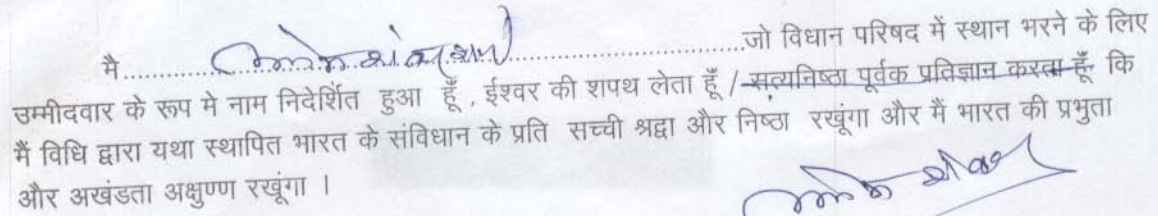 मै.....................................................जो विधान परिषद में स्थान भरने के लिए
उम्मीदवार के रूप मे नाम निदेर्शित हुआ हूँ , ईश्वर की शपथ लेता हूँ / सत्यनिष्ठा पूर्वक प्रतिज्ञान करता हूँ कि
मैं विधि द्वारा यथा स्थापित भारत के संविधान के प्रति सच्ची श्रद्वा और निष्ठा रखूंगा और मैं भारत की प्रभुता
और अखंडता अक्षुण्ण रखूंगा ।